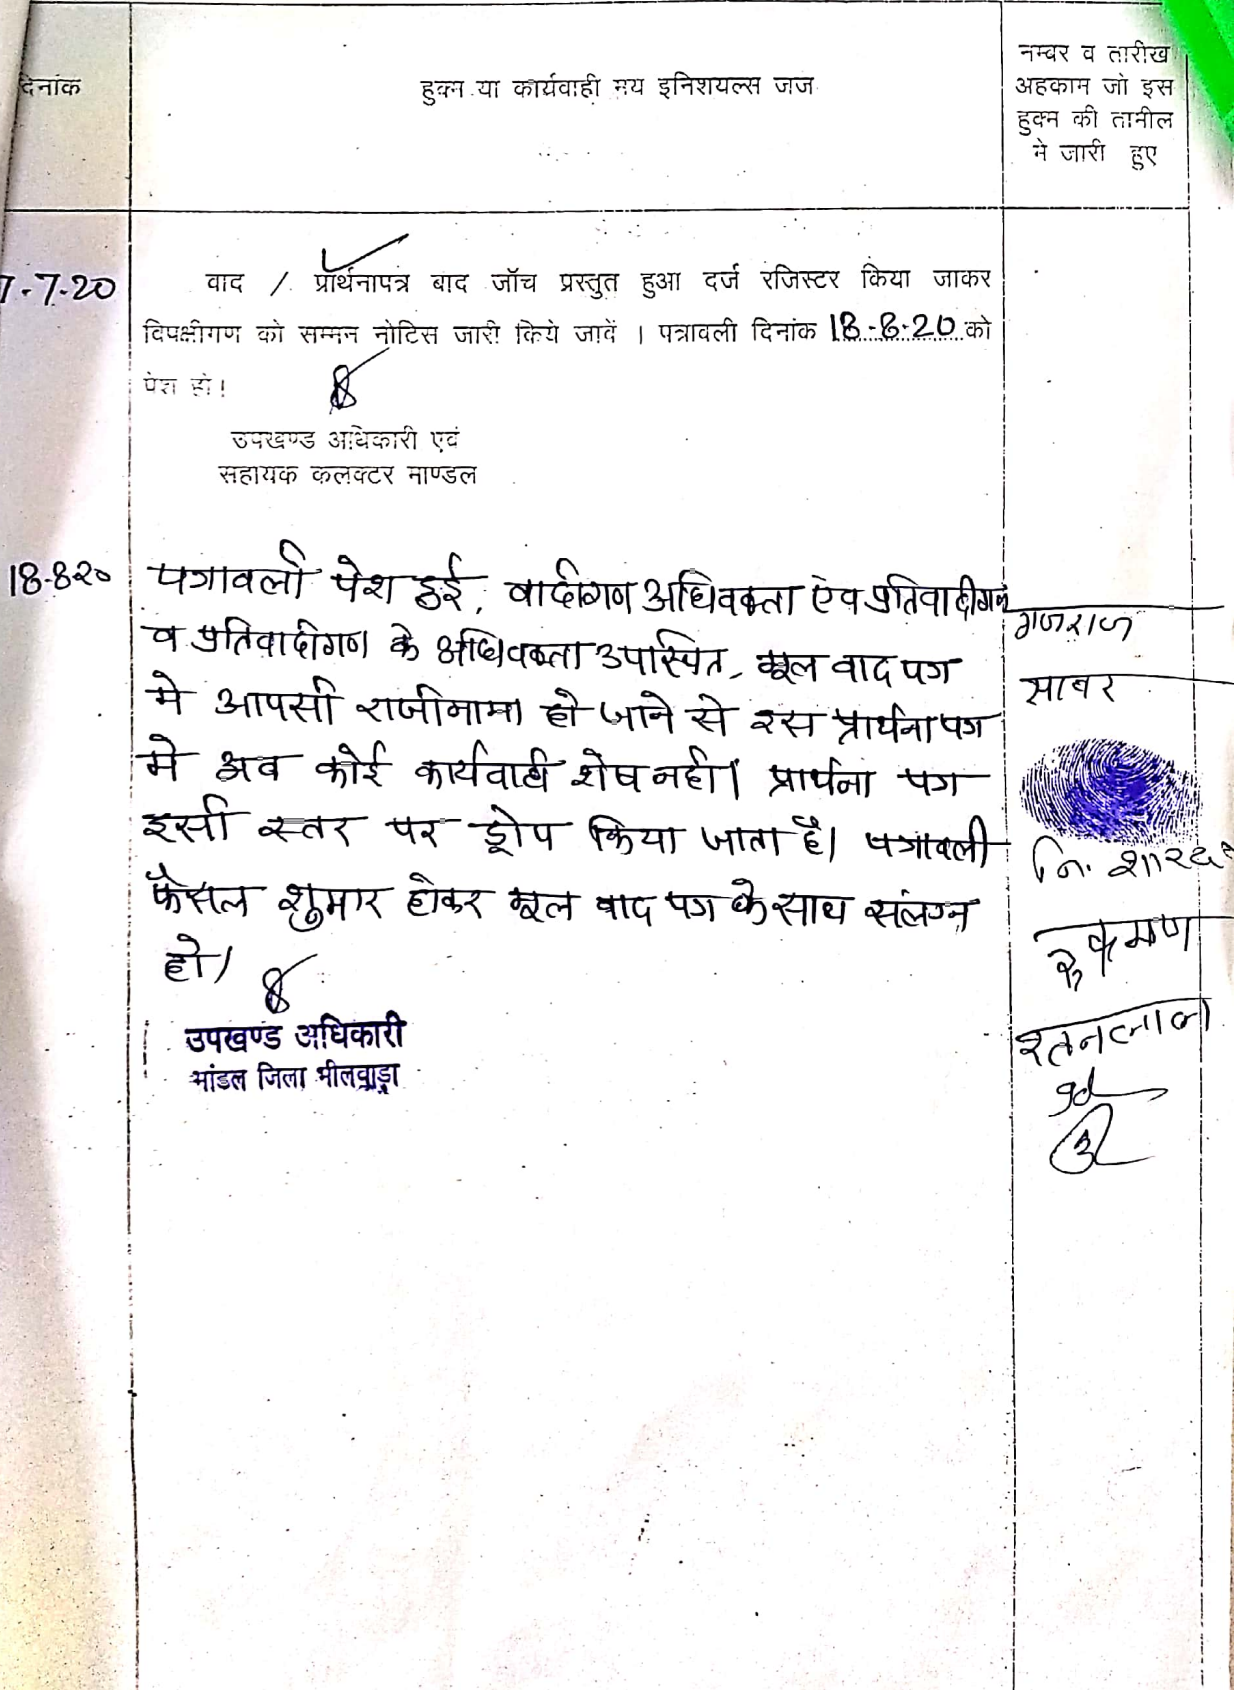 दिनांक
हुक्म या कार्यवाही मय इनिशयल्स जज
नम्बर व तारीख
अहकाम जो इस
हुक्म की तामील
मे जारी हुए
7-7-20
वाद / प्रार्थनापत्र बाद जॉच प्रस्तुत हुआ दर्ज रजिस्टर किया जाकर
विपक्षीगण को सम्मन नोटिस जारी किये जावें । पत्रावली दिनांक 18-8-20 को
पेश हो।
उपखण्ड अधिकारी एवं
सहायक कलक्टर माण्डल
18-8-20
पत्रावली पेश हुई, वादीगण अधिवक्ता एंव प्रतिवादीगण
व प्रतिवादीगण के अधिवक्ता उपस्थित, मूल वाद पत्र
मे आपसी राजीनामा हो जाने से इस प्रार्थना पत्र
मे अब कोई कार्यवाही शेष नही। प्रार्थना पत्र
इसी स्तर पर ड्रोप किया जाता है। पत्रावली
फैसल शुमार होकर मूल वाद पत्र के साथ संलग्न
हो।
उपखण्ड अधिकारी
मांडल जिला भीलवाड़ा
गजराज
सावर
नि. शारदा
रुकमण
रतनलाल